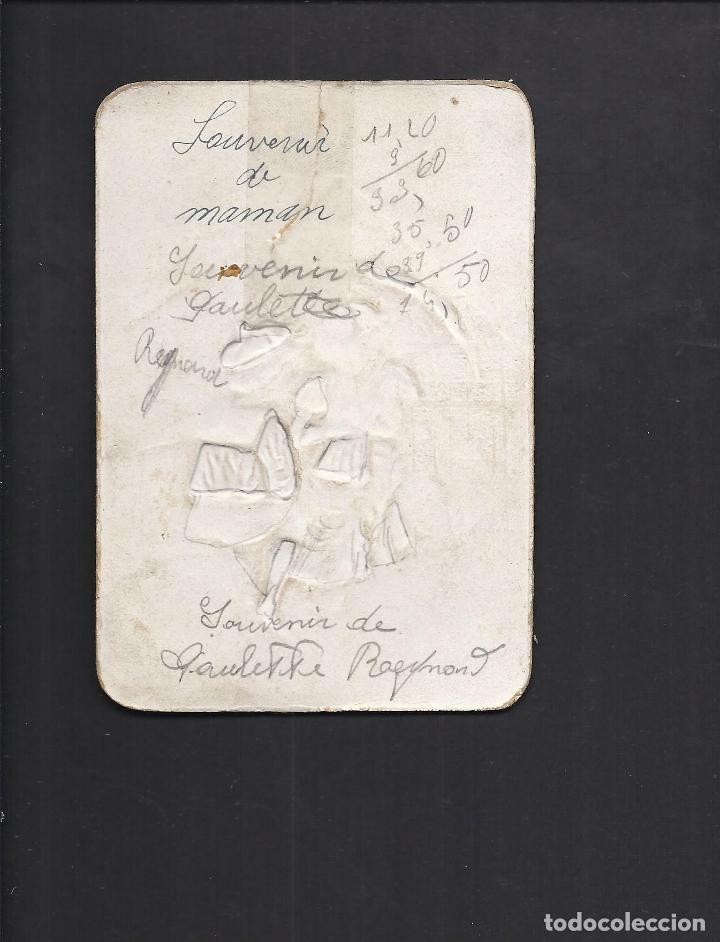 Souvenir
de
maman
11,20
9,60
35,50
39,50
Souvenir de
Paulette
Raymond
Souvenir de
Paulette Raymond
todocoleccion